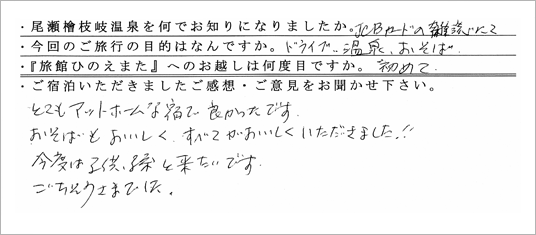 ・尾瀬檜枝岐温泉を何でお知りになりましたか。JCBカードの雑誌にて
・今回のご旅行の目的はなんですか。ドライブ、温泉、おそば
・『旅館ひのえまた』へのお越しは何度目ですか。初めて
・ご宿泊いただきましたご感想・ご意見をお聞かせ下さい。
とてもアットホームな宿で良かったです。
おそばもおいしく、すべてがおいしくいただきました!!
今度は子供、孫と来たいです。
ごちそうさまでした。